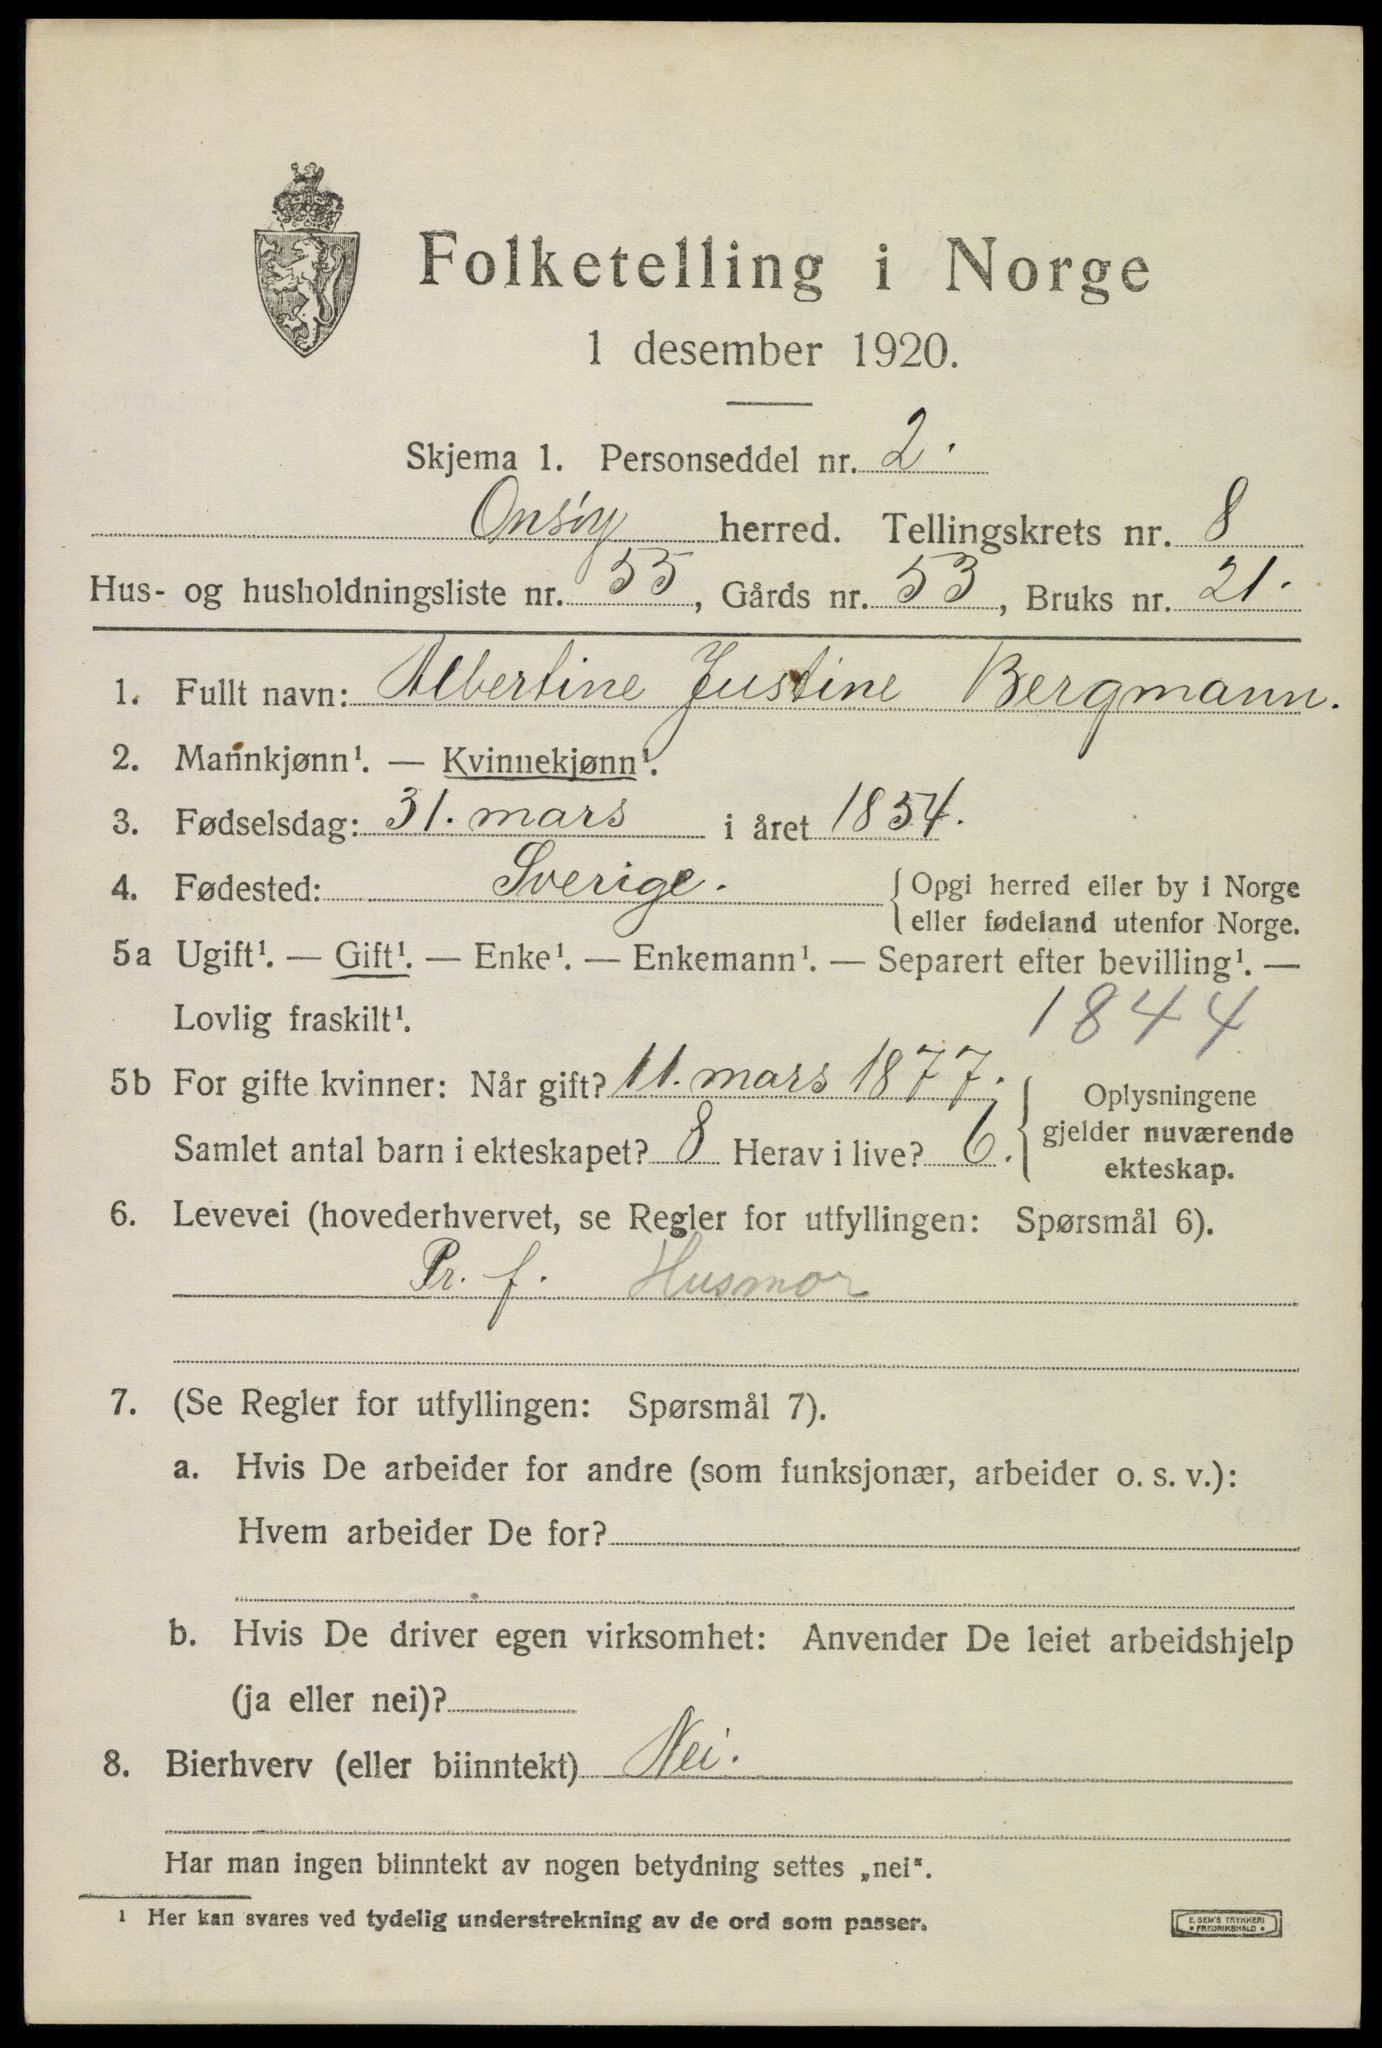 Folketelling i Norge
1 desember 1920.
Skjema 1. Personseddel nr. 2.
Onsøy herred. Tellingskrets nr. 8
Hus- og husholdningsliste nr. 55, Gårds nr. 53, Bruks nr. 21.
1. Fullt navn: Albertine Justine Bergmann.
2. Mannkjønn¹. — Kvinnekjønn¹.
3. Fødselsdag: 31. mars i året 1854.
4. Fødested: Sverige. { Opgi herred eller by i Norge
eller fødeland utenfor Norge.
5a Ugift¹. — Gift¹. — Enke¹. — Enkemann¹. — Separert efter bevilling¹. —
Lovlig fraskilt¹. 1844
5b For gifte kvinner: Når gift? 11. mars 1877. { Oplysningene
Samlet antal barn i ekteskapet? 8 Herav i live? 6. gjelder nuværende
ekteskap.
6. Levevei (hovederhvervet, se Regler for utfyllingen: Spørsmål 6).
Pr. f. Husmor
7. (Se Regler for utfyllingen: Spørsmål 7).
a. Hvis De arbeider for andre (som funksjonær, arbeider o. s. v.):
Hvem arbeider De for?
b. Hvis De driver egen virksomhet: Anvender De leiet arbeidshjelp
(ja eller nei)?
8. Bierhverv (eller biinntekt) Nei.
Har man ingen biinntekt av nogen betydning settes „nei".
¹ Her kan svares ved tydelig understrekning av de ord som passer.
E. SEM'S TRYKKERI
• FREDRIKSHALD •